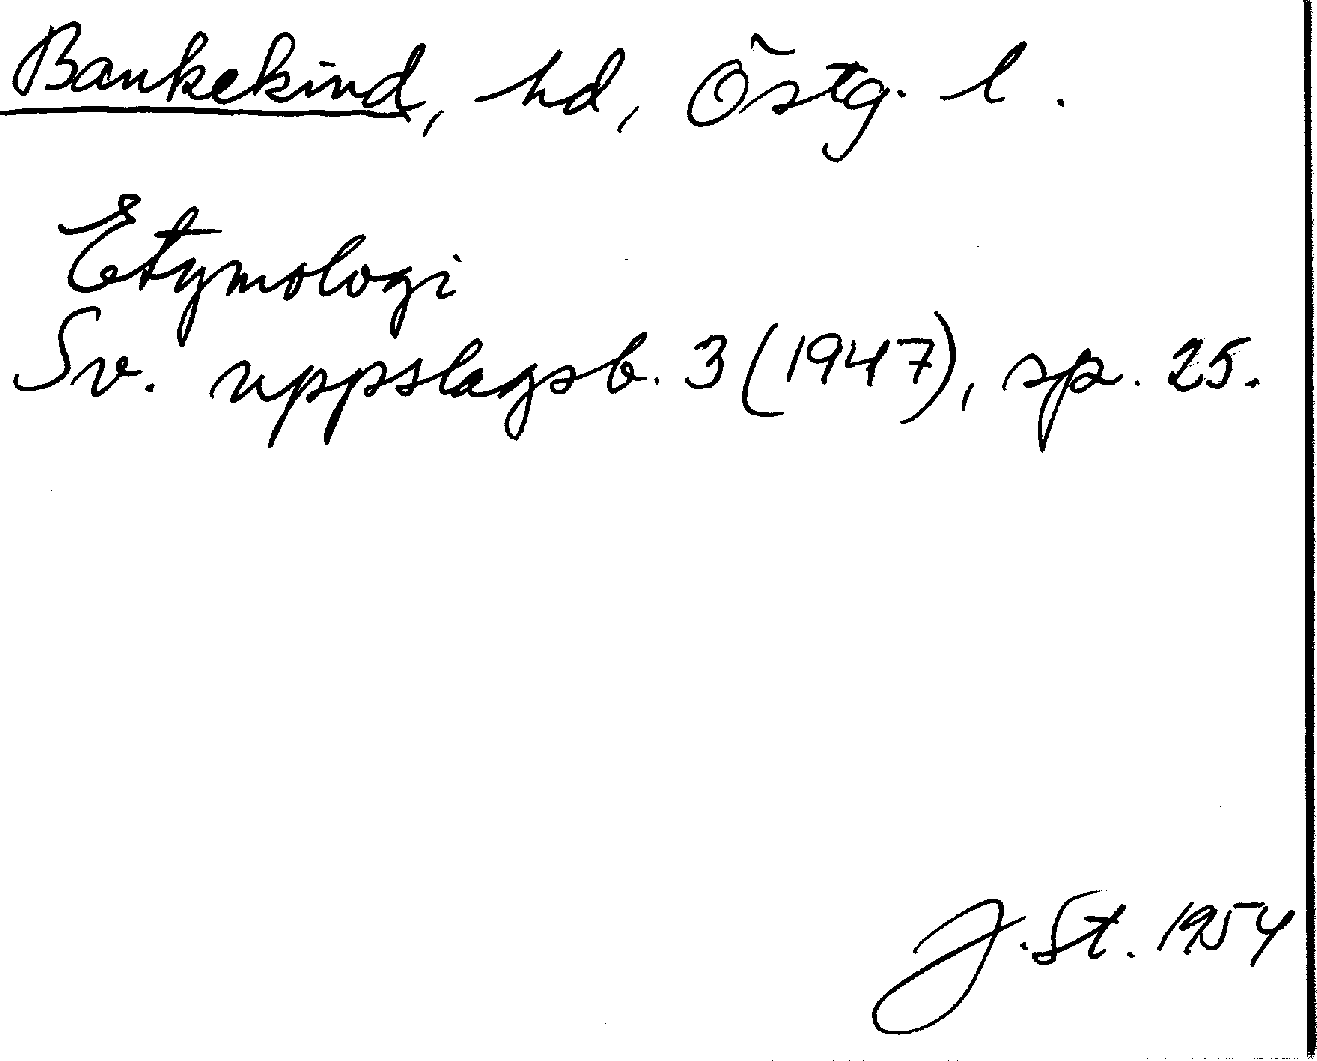 Bankekind, hd, Östg. l.
Etymologi
Sv. uppslagsb. 3 (1947), sp. 25.
J. St. 1954